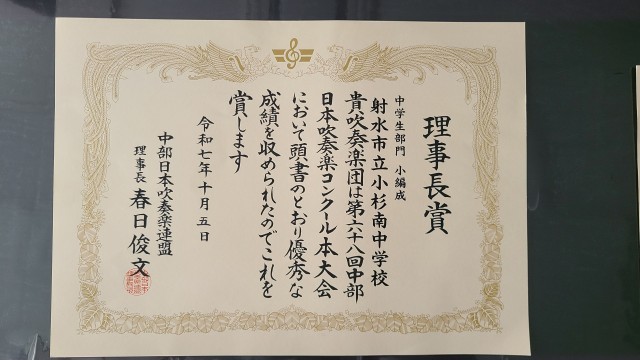 理事長賞
中学生部門 小編成
射水市立小杉南中学校
貴吹奏楽団は第六十八回中部
日本吹奏楽コンクール本大会
において頭書のとおり優秀な
成績を収められたのでこれを
賞します
令和七年十月五日
中部日本吹奏楽連盟
理事長 春日俊文